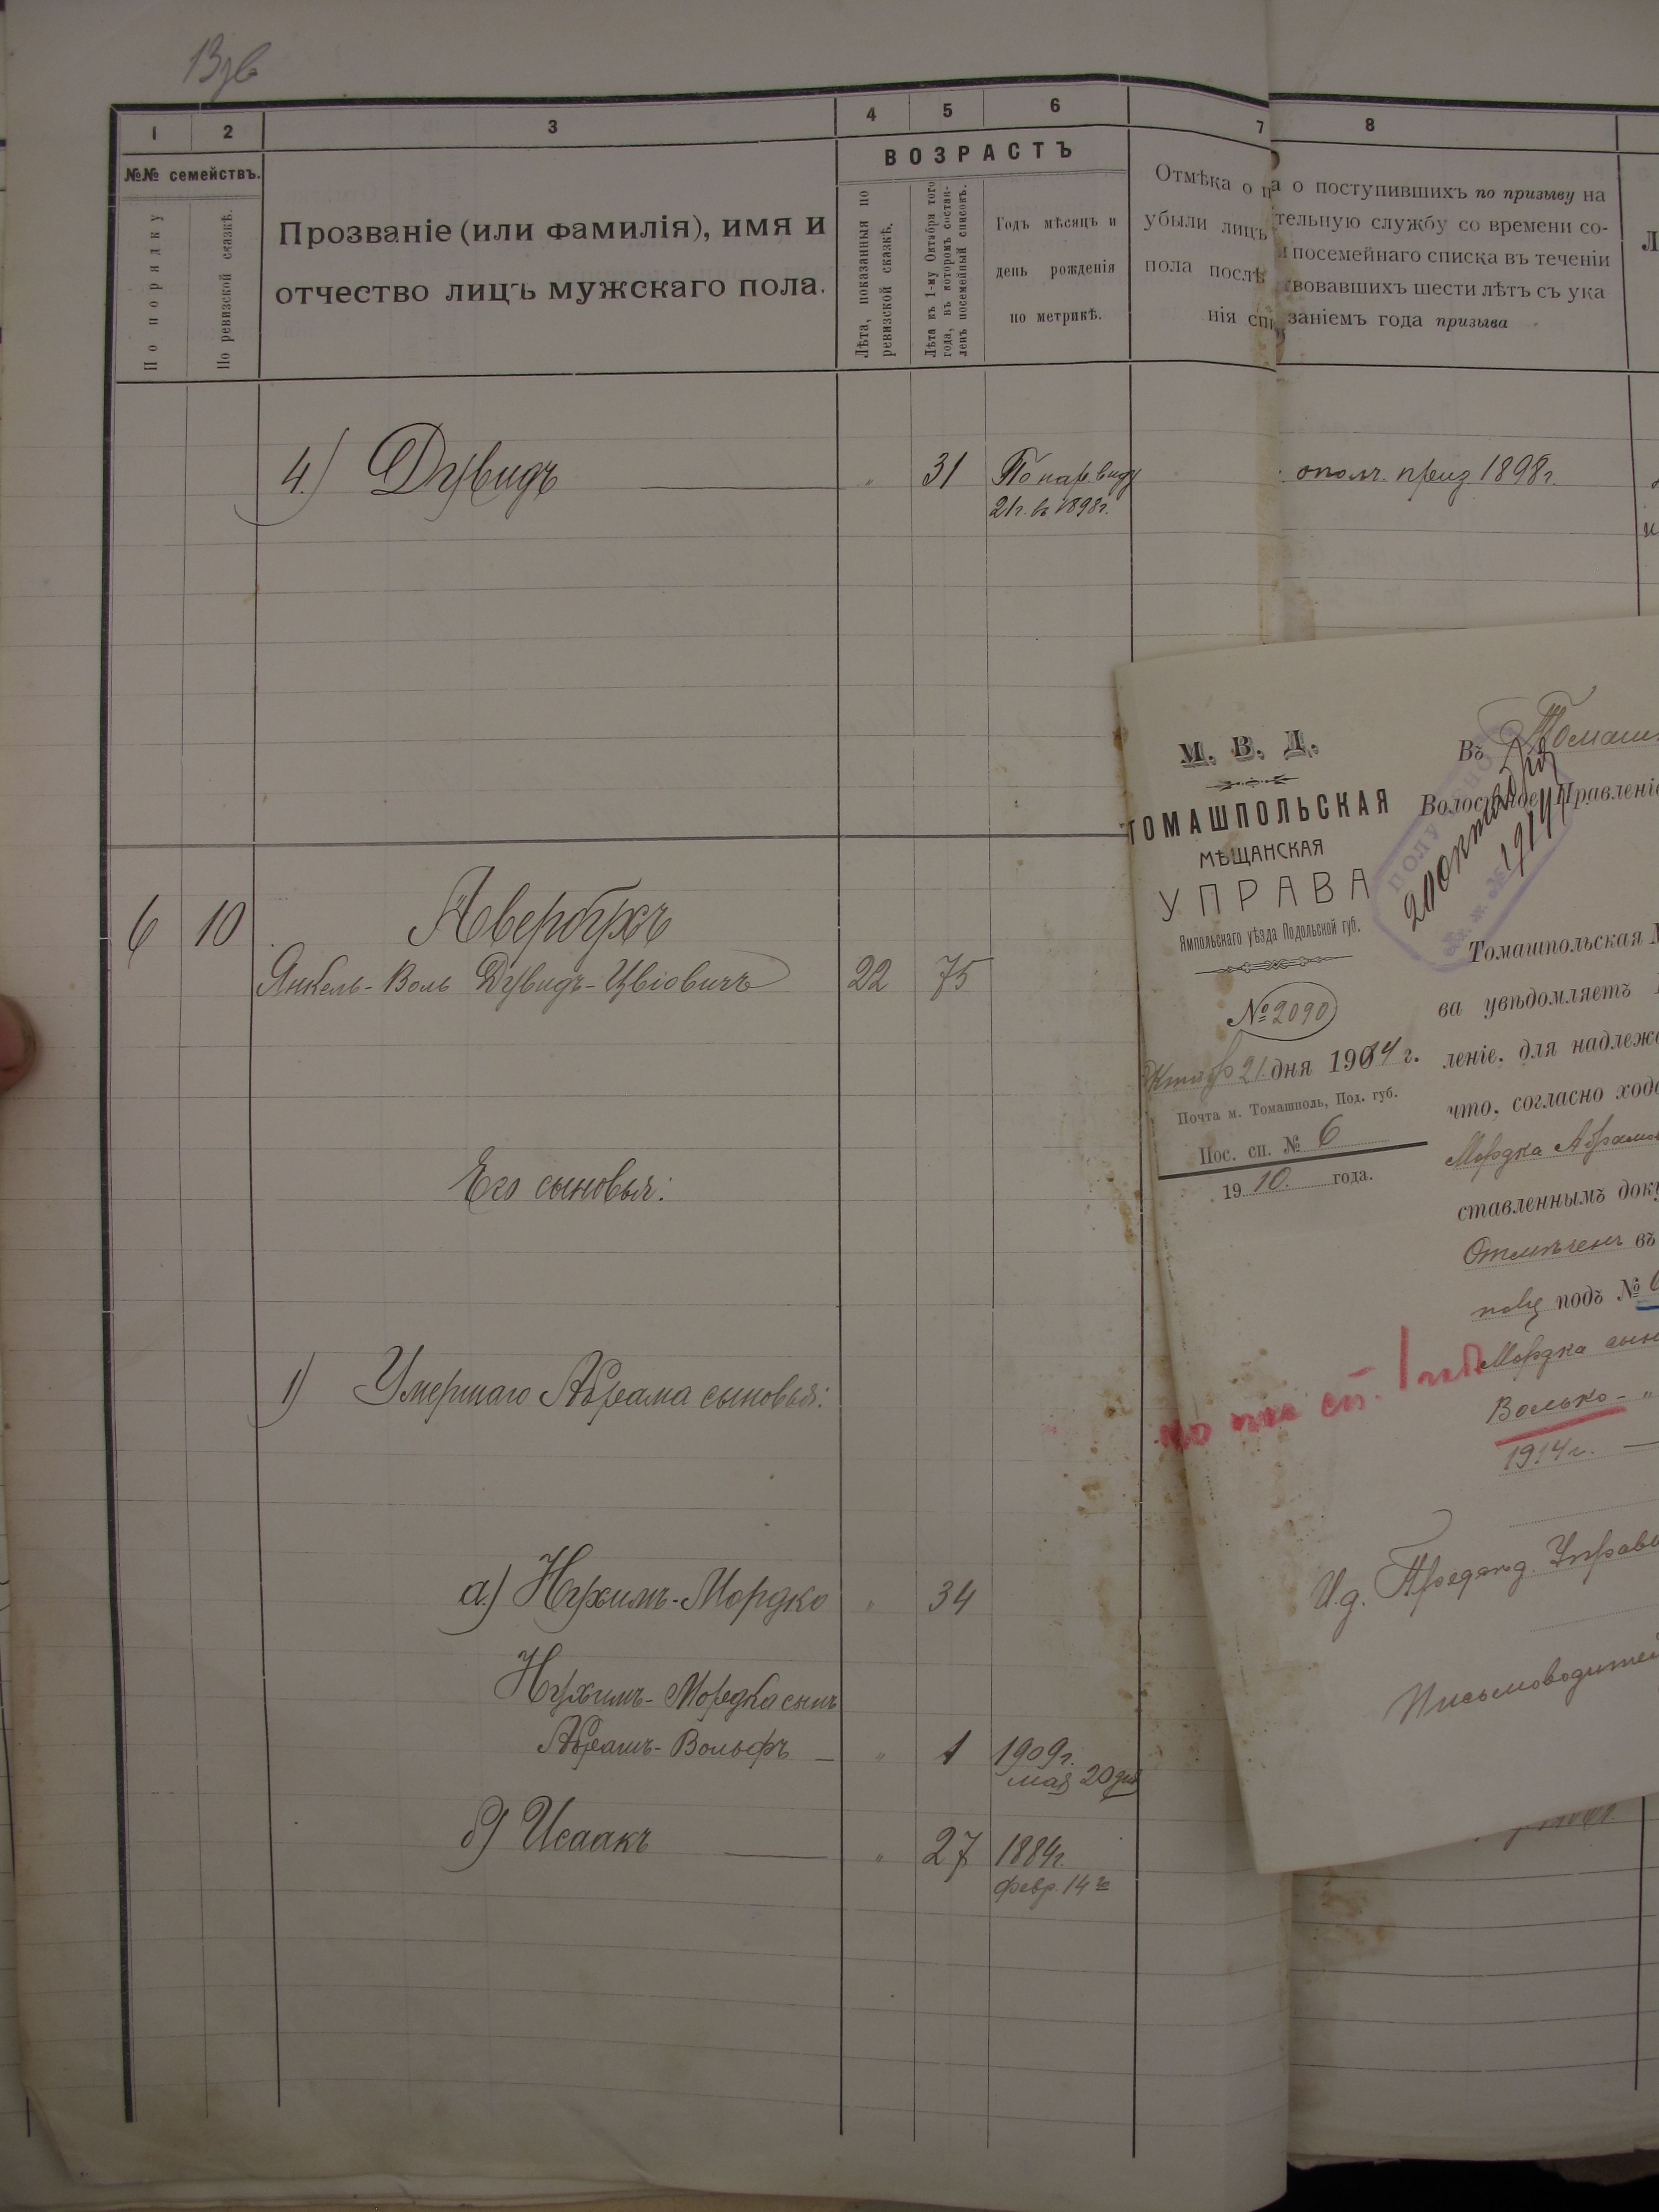 13
1
2
3
4
5
6
7
8
№№ семействъ.
По порядку
По ревизской сказкѣ.
Прозваніе (или фамилія), имя и
отчество лицъ мужскаго пола.
ВОЗРАСТЪ
Лѣта, показанныя по
ревизской сказкѣ.
Лѣта къ 1-му Октября того
года, въ которомъ состав-
ленъ посемейный списокъ.
Годъ мѣсяцъ и
день рожденія
по метрикѣ.
Отмѣка о п
убыли лицъ
пола послѣ
нія сп
а о поступившихъ по призыву на
тельную службу со времени со-
и посемейнаго списка въ теченіи
твовавшихъ шести лѣтъ съ ука
заніемъ года призыва
4.) Дувидъ — " 31 По нар. виду
21 г. въ 1898 г.
ополч. приз 1898 г.
6 10 Авербухъ
Янкель-Воль Дувидъ-Цвіовичъ 22 75
Его сыновья:
1) Умершаго Абрама сыновья:
а.) Нухимъ-Мордко " 34
Нухимъ-Мордка сынъ
Абрамъ-Вольфъ — " 1 1909 г.
мая 20 дня
б) Исаакъ — " 27 1884 г.
февр. 14 го
М. В. Д.
ТОМАШПОЛЬСКАЯ
МѢЩАНСКАЯ
УПРАВА
Ямпольскаго уѣзда Подольской губ.
№ 2090
21 дня 1914 г.
Почта м. Томашполь, Под. губ.
Пос. сп. № 6
19 10. года.
Въ Томаш
Волостное Правленіе
ПОЛУЧЕНО
1914
Томашпольская М
ва увѣдомляетъ
леніе, для надлежа
что, согласно ходо
Мордка Абрамо
ставленнымъ доку
Отмѣченъ въ
подъ № 6
Мордка сын
Волько - "
1914 г. —
И.д. Предсѣд. Управы
Письмоводитель